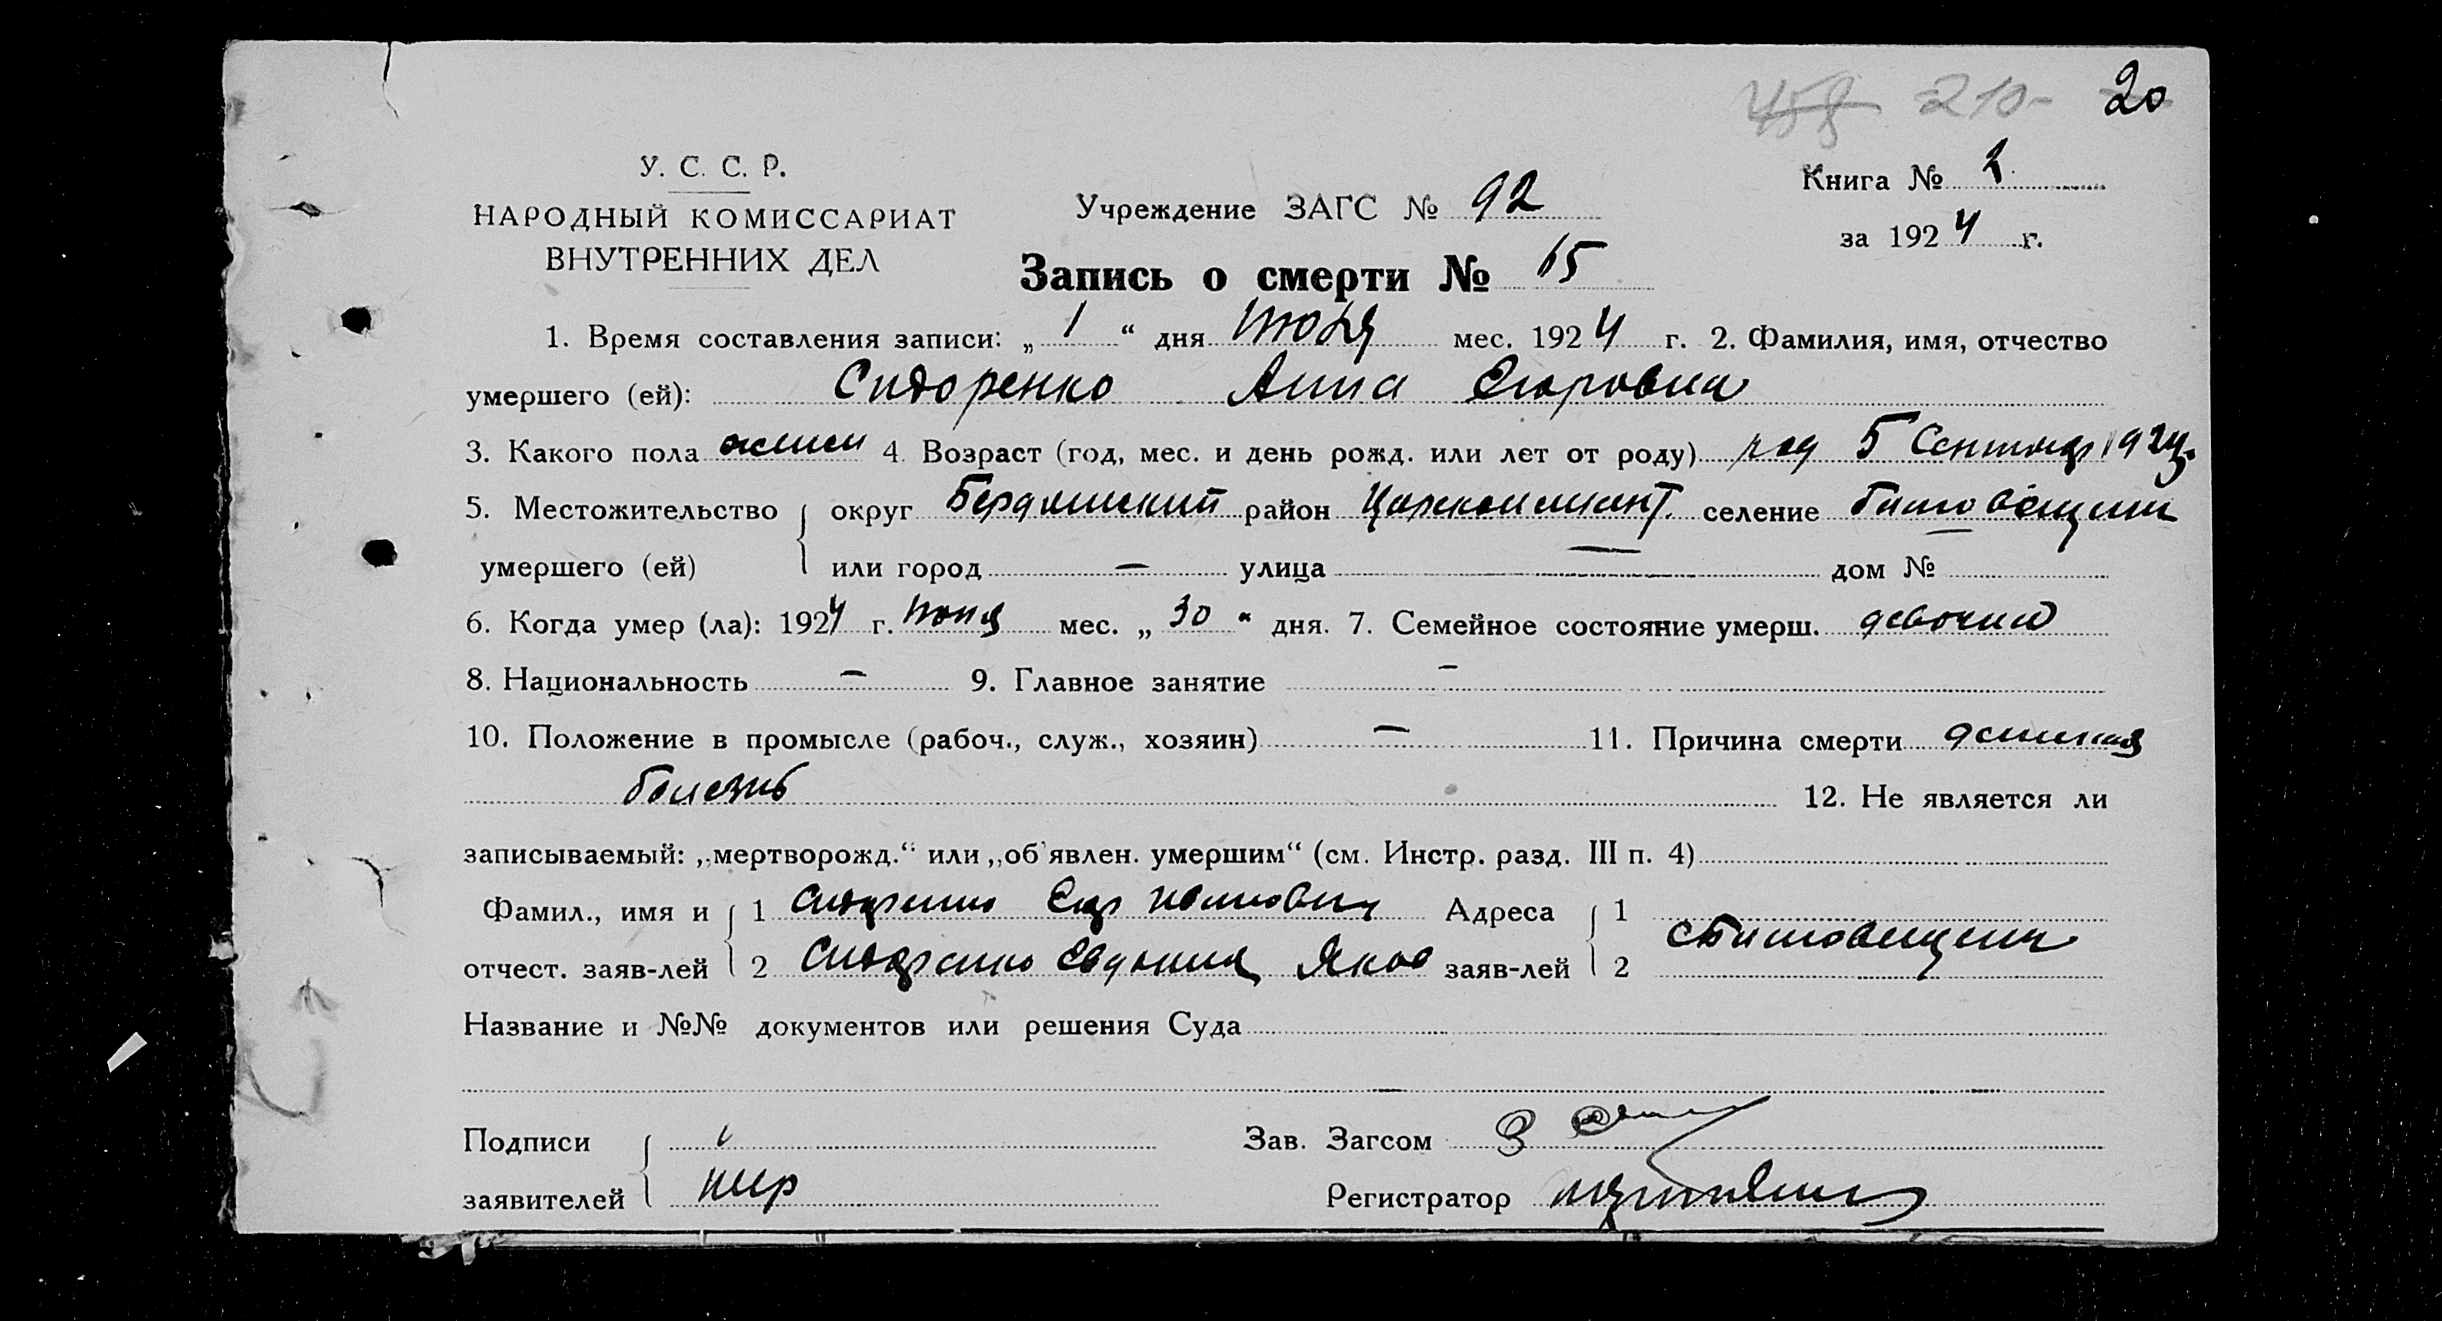 458 210 20
У. С. С. Р.
НАРОДНЫЙ КОМИССАРИАТ
ВНУТРЕННИХ ДЕЛ
Учреждение ЗАГС № 92
Книга № 2
за 1924 г.
Запись о смерти № 65
1. Время составления записи: „ 1 “ дня Июля мес. 1924 г. 2. Фамилия, имя, отчество
умершего (ей): Сидоренко Анна Егоровна
3. Какого пола женск 4. Возраст (год, мес. и день рожд. или лет от роду) род 5 Сентябр
5. Местожительство { округ Бердянский район селение
умершего (ей) или город — улица — дом №
6. Когда умер (ла): 1924 г. Июня мес. „ 30 “ дня. 7. Семейное состояние умерш. девочка
8. Национальность — 9. Главное занятие -
10. Положение в промысле (рабоч., служ., хозяин) — 11. Причина смерти детская
болезнь 12. Не является ли
записываемый: „мертворожд.“ или „об'явлен. умершим“ (см. Инстр. разд. III п. 4)
Фамил., имя и { 1 Сидоренко Егор Иванович Адреса { 1
отчест. заяв-лей 2 Сидоренко Евдокия Яков заяв-лей 2
Название и №№ документов или решения Суда
Подписи { Зав. Загсом
заявителей Регистратор